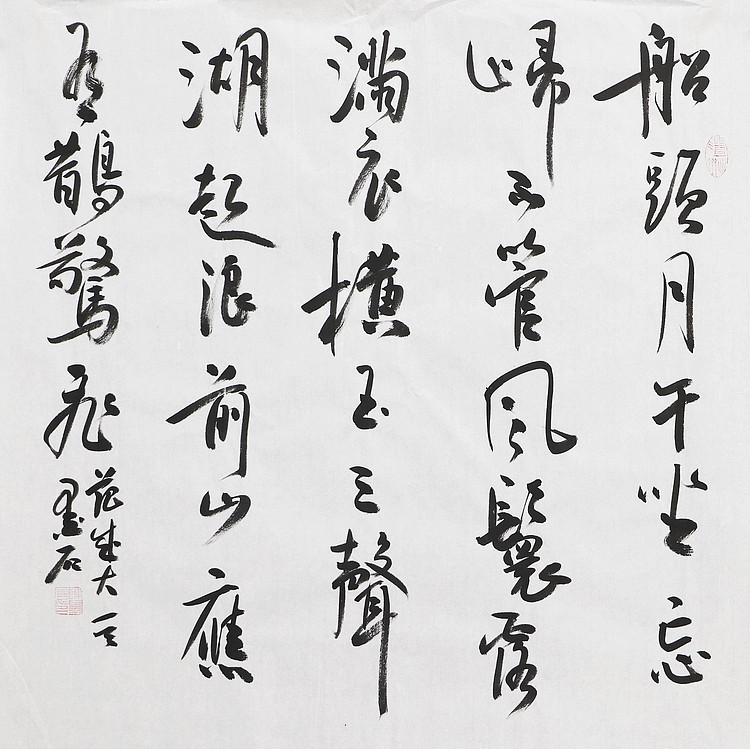 船頭月午坐忘
歸不管風鬟露
滿衣橫玉三聲
湖起浪前山應
有鵲驚飛
范成大
墨石